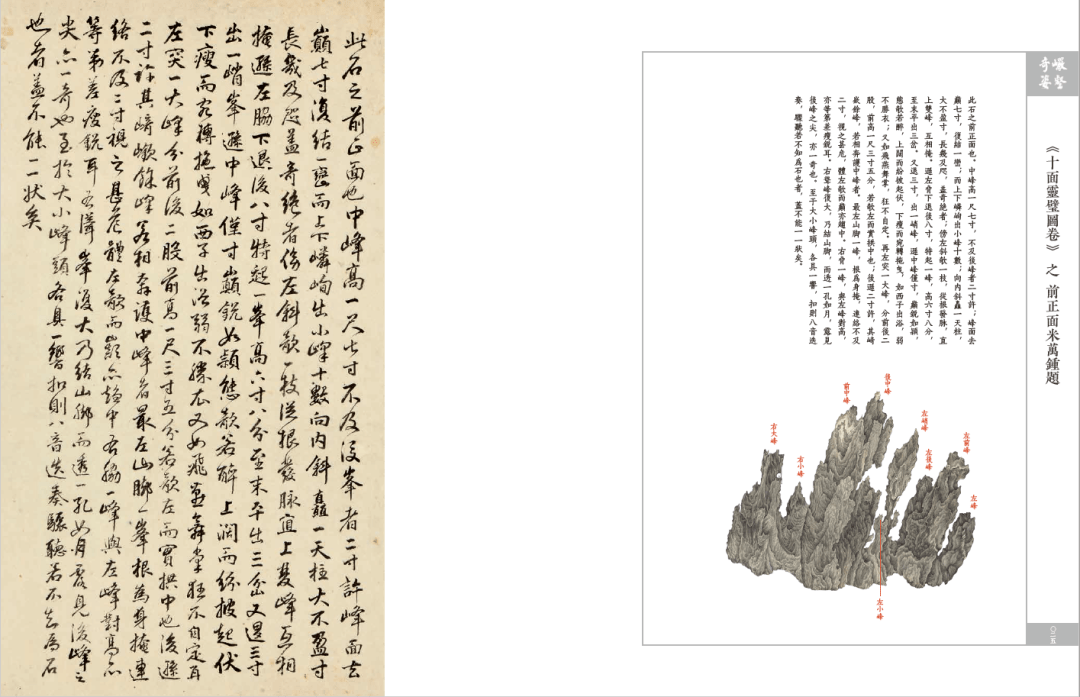 壑
奇姿
《十面靈璧圖卷》之 前正面米萬鍾題
〇一五
此石之前正面也。中峰高一尺七寸，不及後峰者二寸許；峰面去
巔七寸，復結一巒；而上下嶙峋出小峰十數；向内斜矗一天柱，
大不盈寸，長幾及咫，蓋奇絕者；傍左斜欹一枝，從根發脉，直
上雙峰，互相掩。遜左脅下退後八寸，特起一峰，高六寸八分，
至末平出三岔。又退三寸，出一峭峰，遜中峰僅寸，巔銳如穎，
態欹若醉，上闊而紛披起伏，下瘦而宛轉拖曳，如西子出浴，弱
不勝衣；又如飛燕舞掌，狂不自定。再左突一大峰，分前後二
股，前高一尺三寸五分，若欹左而實拱中也；後遜二寸許，其崎
嶔餘峰，若相奔護中峰者。最左山脚一峰，根爲身掩，連絡不及
二寸，視之甚危，體左欹而巔亦趨中。右脅一峰，與左峰對高，
亦等第差瘦銳耳。右聳峰復大，乃結山脚，而透一孔如月，露見
後峰之尖，亦一奇也。至于大小峰頭，各具一響，扣則八音迭
奏，驟聽若不知爲石也者，蓋不能一一狀矣。
後中峰
前中峰
左峭峰
右大峰
左前峰
左後峰
右小峰
左峰
左小峰
此石之前正面也中峰高一尺七寸不及後峯者二寸許峰面去
巔七寸復結一巒而上下嶙峋出小峰十數向内斜矗一天柱大不盈寸
長幾及咫蓋奇絕者傍左斜欹一枝從根發脉直上雙峰互相
掩遜左脇下退後八寸特起一峯高六寸八分至末平出三岔又退三寸
出一峭峯遜中峰僅寸巔銳如穎態欹若醉上濶而紛披起伏
下瘦而宛轉拖曳如西子出浴弱不勝衣又如飛燕舞掌狂不自定再
左突一大峰分前後二股前高一尺三寸五分若欹左而實拱中也後遜
二寸許其崎嶔餘峰若相奔護中峰者最左山脚一峯根爲身掩連
絡不及二寸視之甚危體左欹而巔亦趨中右脇一峰與左峰對高亦
等第差瘦銳耳右聳峯復大乃結山脚而透一孔如月露見後峰之
尖亦一奇也至於大小峰頭各具一響扣則八音迭奏驟聽若不知爲石
也者蓋不能一一狀矣